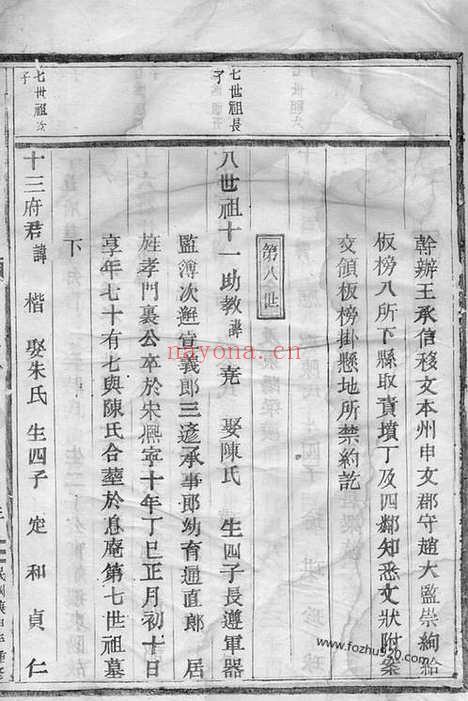 幹辦王承信移文本州申文郡守趙大監崇絢給
板榜八所下縣取責墳丁及四鄰知悉文狀附案
交領板榜掛懸地所禁約訖
第八世
七世祖長子
八世祖十一助教諱堯 娶陳氏 生四子長遵軍器
監簿次邂宣義郎三遜承事郎幼育通直郎 居
旌孝門裏公卒於宋熙寧十年丁巳正月初十日
享年七十有七與陳氏合塟於息庵第七世祖墓
下
七世祖次子
十三府君諱楷 娶朱氏 生四子 定 和 貞 仁
nayona.cn
www.fozhu920.com